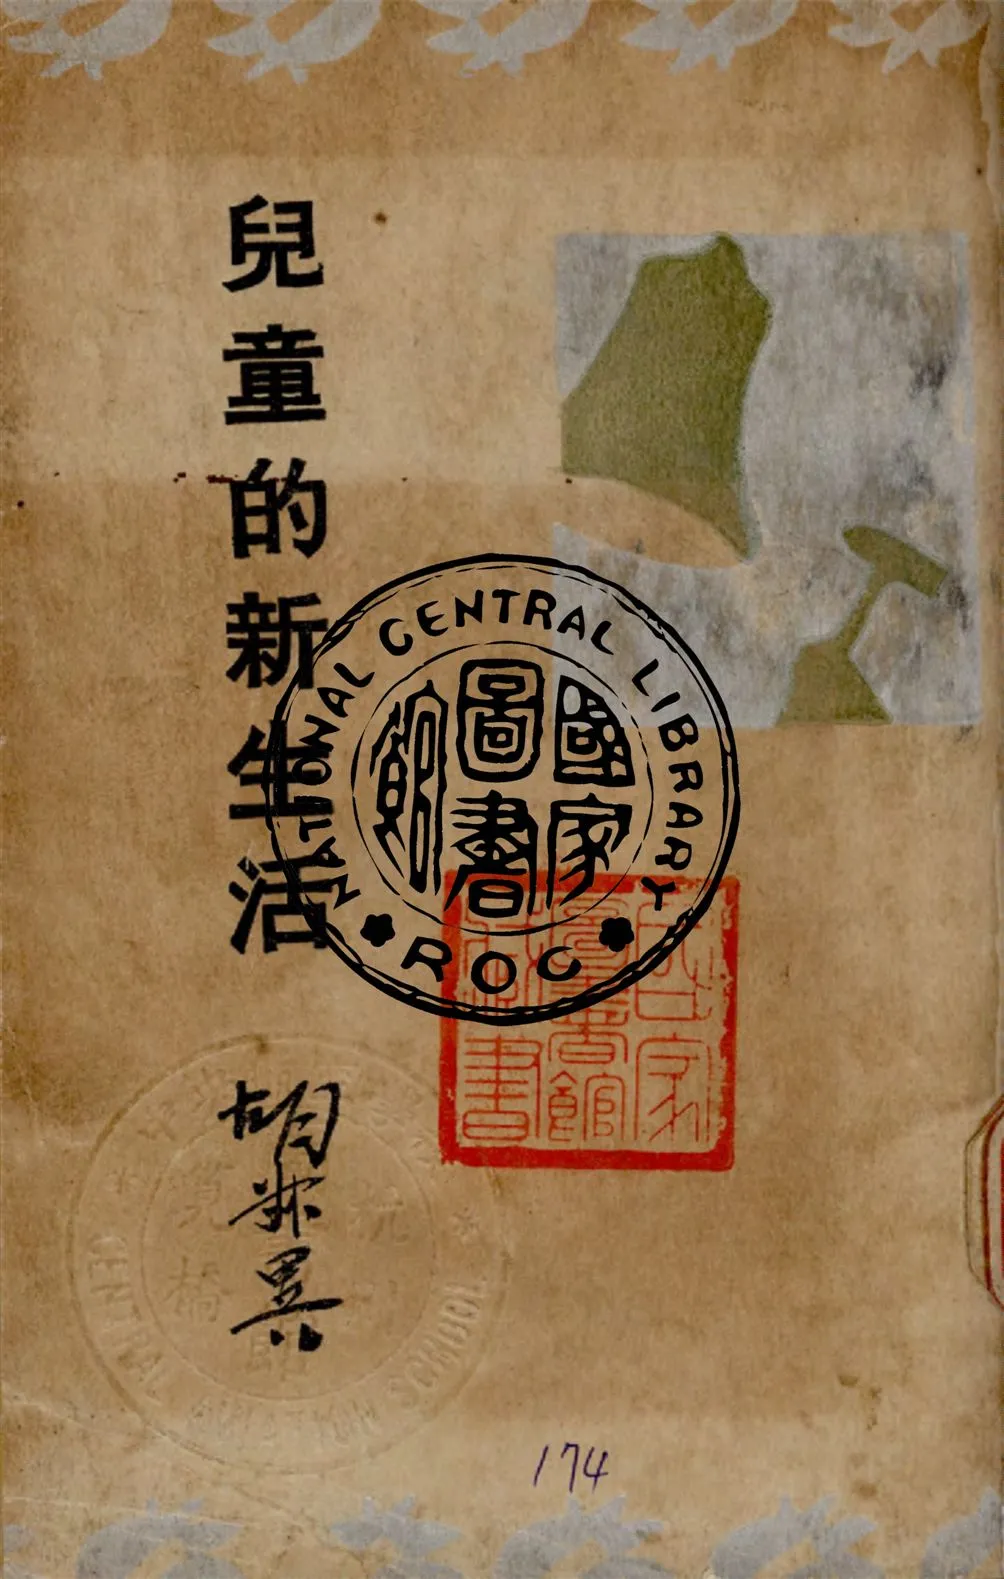 兒童的新生活
胡叔異
NATIONAL CENTRAL LIBRARY
國家圖書館
ROC
國家圖書館藏書
筧橋
CENTRAL AVIATION SCHOOL
174